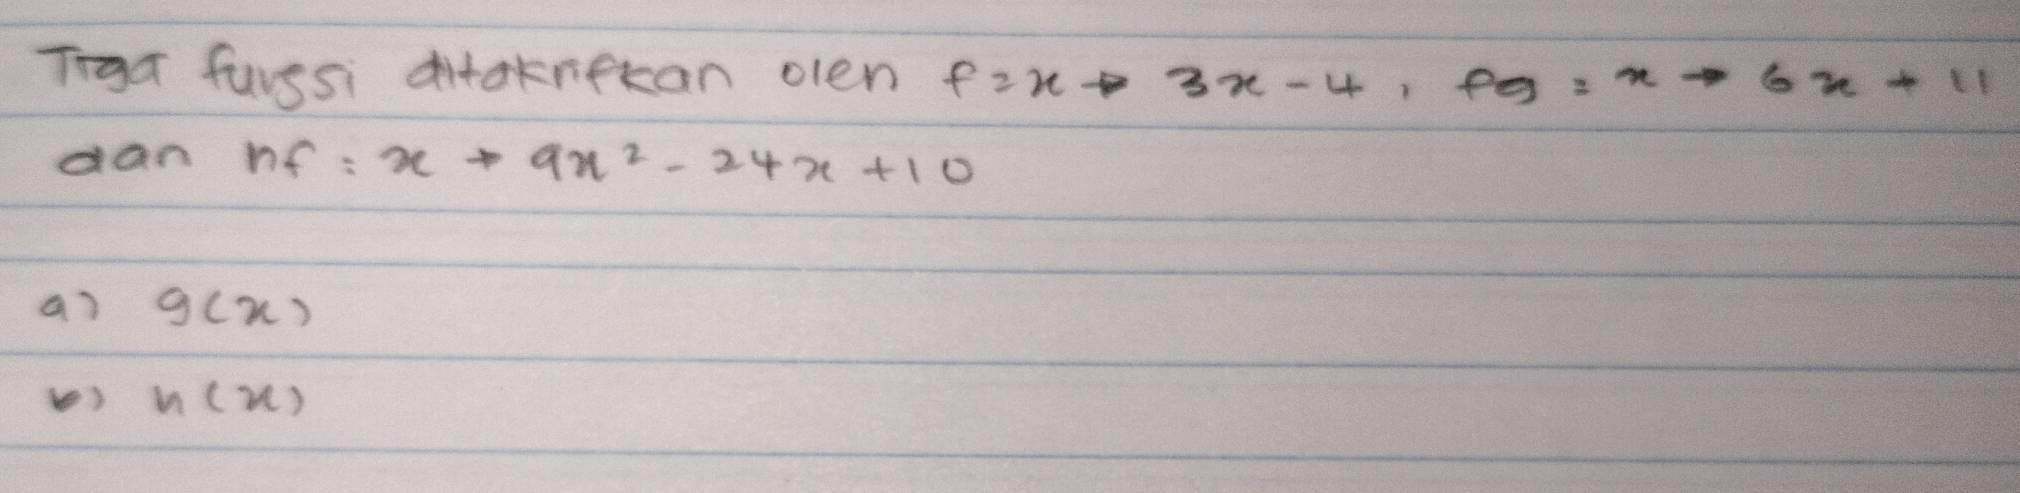 Tiga fungsi ditakrifkan oleh f : x → 3x - 4, fg : x → 6x + 11
dan hf : x → 9x² - 24x + 10
a) g(x)
b) h(x)